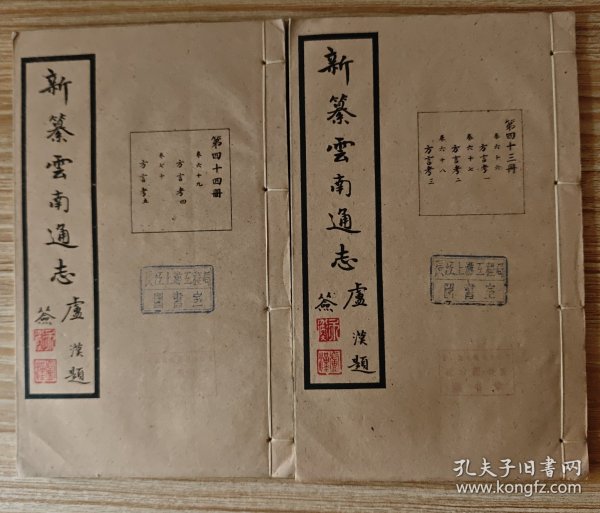 新纂雲南通志
盧漢題
签
第四十三冊
卷六十六
方言考一
卷六十七
方言考二
卷六十八
方言考三
新纂雲南通志
盧漢題
签
第四十四冊
卷六十九
方言考四
卷七十
方言考五
孔夫子旧书网
www.kongfz.com